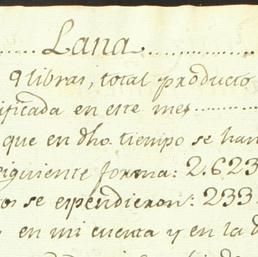 Lana
9 libras, total producto
ificada en este mes
que en dho. tiempo se han
siguiente forma: 2.623
os se espendieron: 233
en mi cuenta y en la d